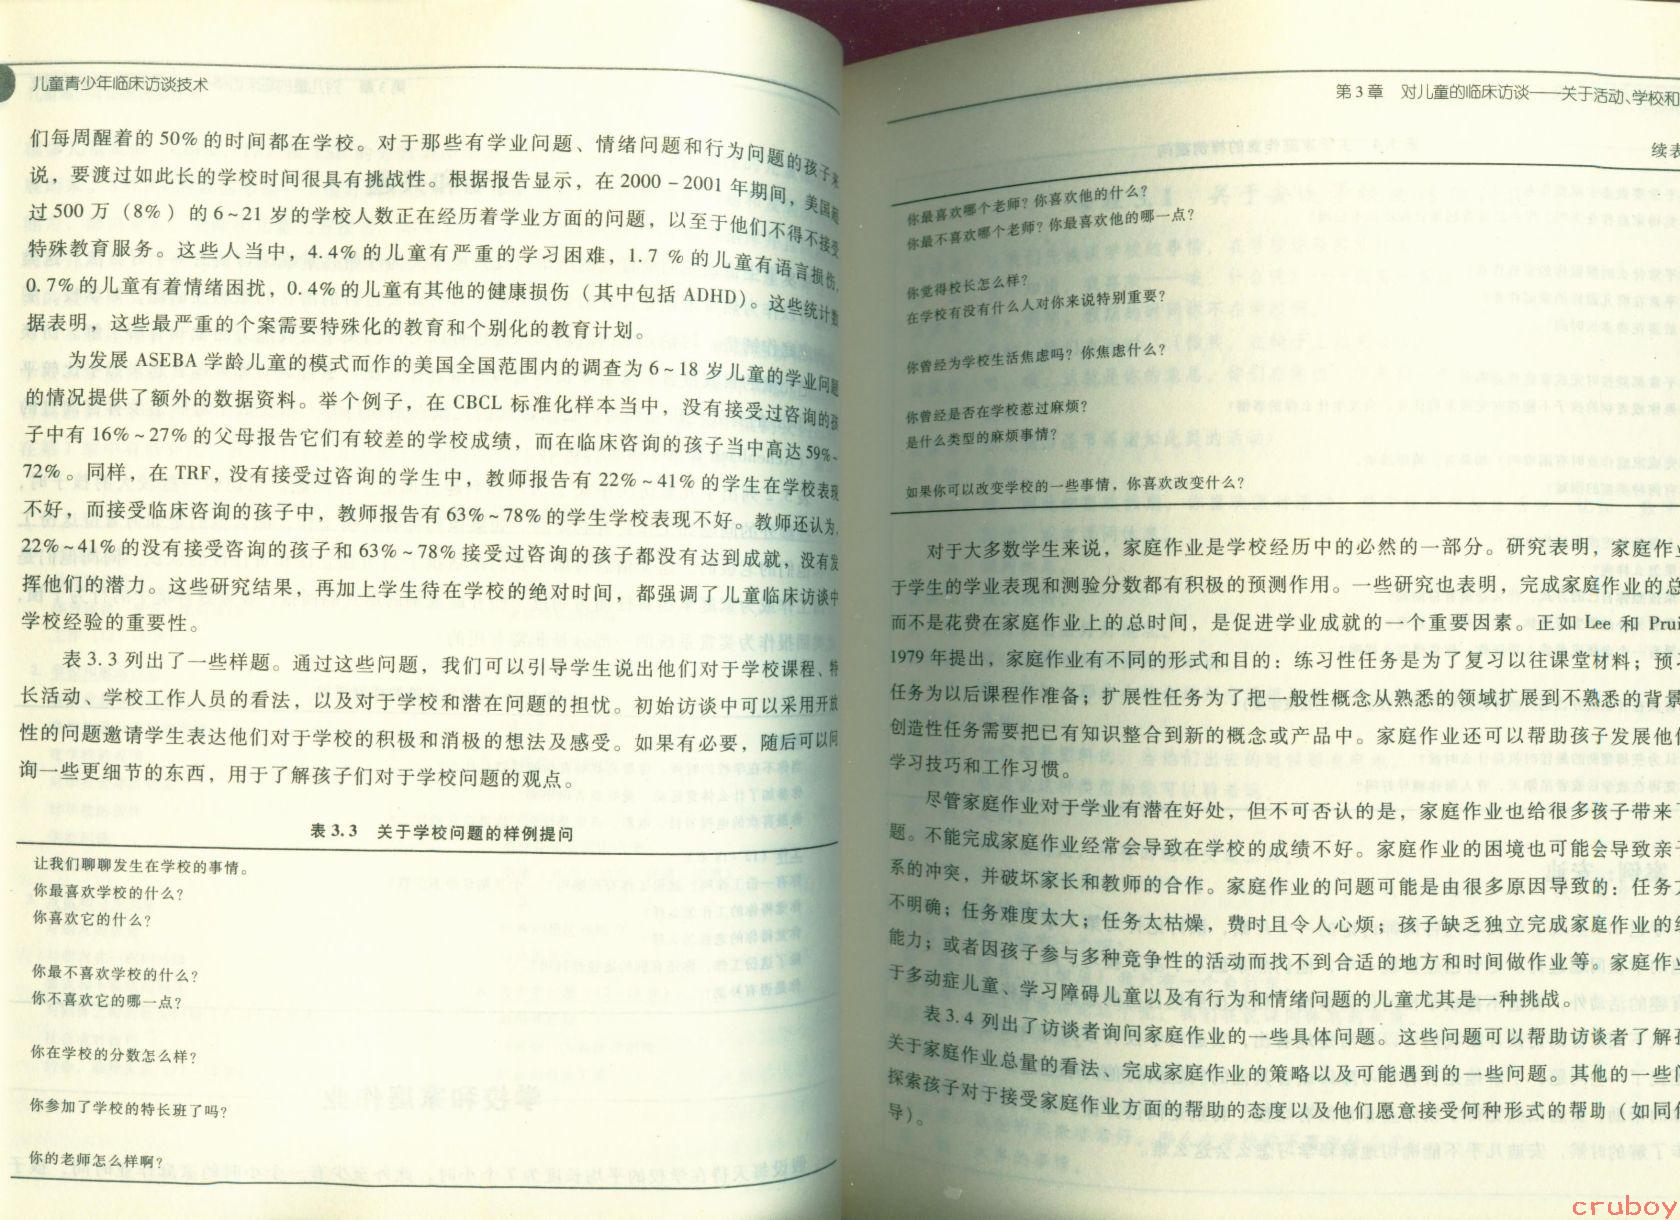 儿童青少年临床访谈技术
们每周醒着的50%的时间都在学校。对于那些有学业问题、情绪问题和行为问题的孩子来
说，要渡过如此长的学校时间很具有挑战性。根据报告显示，在2000－2001年期间，美国超
过500万（8%）的6～21岁的学校人数正在经历着学业方面的问题，以至于他们不得不接受
特殊教育服务。这些人当中，4.4%的儿童有严重的学习困难，1.7 %的儿童有语言损伤，
0.7%的儿童有着情绪困扰，0.4%的儿童有其他的健康损伤（其中包括 ADHD）。这些统计数
据表明，这些最严重的个案需要特殊化的教育和个别化的教育计划。
为发展 ASEBA 学龄儿童的模式而作的美国全国范围内的调查为6～18岁儿童的学业问题
的情况提供了额外的数据资料。举个例子，在 CBCL 标准化样本当中，没有接受过咨询的孩
子中有16%～27%的父母报告它们有较差的学校成绩，而在临床咨询的孩子当中高达59%～
72%。同样，在 TRF，没有接受过咨询的学生中，教师报告有22%～41%的学生在学校表现
不好，而接受临床咨询的孩子中，教师报告有63%～78%的学生学校表现不好。教师还认为，
22%～41%的没有接受咨询的孩子和63%～78%接受过咨询的孩子都没有达到成就，没有发
挥他们的潜力。这些研究结果，再加上学生待在学校的绝对时间，都强调了儿童临床访谈中
学校经验的重要性。
表3.3列出了一些样题。通过这些问题，我们可以引导学生说出他们对于学校课程、特
长活动、学校工作人员的看法，以及对于学校和潜在问题的担忧。初始访谈中可以采用开放
性的问题邀请学生表达他们对于学校的积极和消极的想法及感受。如果有必要，随后可以问
询一些更细节的东西，用于了解孩子们对于学校问题的观点。
表3.3 关于学校问题的样例提问
让我们聊聊发生在学校的事情。
你最喜欢学校的什么？
你喜欢它的什么？
你最不喜欢学校的什么？
你不喜欢它的哪一点？
你在学校的分数怎么样？
你参加了学校的特长班了吗？
你的老师怎么样啊？
第3章 对儿童的临床访谈——关于活动、学校和
续表
你最喜欢哪个老师？你喜欢他的什么？
你最不喜欢哪个老师？你最喜欢他的哪一点？
你觉得校长怎么样？
在学校有没有什么人对你来说特别重要？
你曾经为学校生活焦虑吗？你焦虑什么？
你曾经是否在学校惹过麻烦？
是什么类型的麻烦事情？
如果你可以改变学校的一些事情，你喜欢改变什么？
对于大多数学生来说，家庭作业是学校经历中的必然的一部分。研究表明，家庭作业
于学生的学业表现和测验分数都有积极的预测作用。一些研究也表明，完成家庭作业的总
而不是花费在家庭作业上的总时间，是促进学业成就的一个重要因素。正如 Lee 和 Prui
1979年提出，家庭作业有不同的形式和目的：练习性任务是为了复习以往课堂材料；预习
任务为以后课程作准备；扩展性任务为了把一般性概念从熟悉的领域扩展到不熟悉的背景
创造性任务需要把已有知识整合到新的概念或产品中。家庭作业还可以帮助孩子发展他们
学习技巧和工作习惯。
尽管家庭作业对于学业有潜在好处，但不可否认的是，家庭作业也给很多孩子带来了
题。不能完成家庭作业经常会导致在学校的成绩不好。家庭作业的困境也可能会导致亲子
系的冲突，并破坏家长和教师的合作。家庭作业的问题可能是由很多原因导致的：任务
不明确；任务难度太大；任务太枯燥，费时且令人心烦；孩子缺乏独立完成家庭作业的
能力；或者因孩子参与多种竞争性的活动而找不到合适的地方和时间做作业等。家庭作业
于多动症儿童、学习障碍儿童以及有行为和情绪问题的儿童尤其是一种挑战。
表3.4列出了访谈者询问家庭作业的一些具体问题。这些问题可以帮助访谈者了解孩
关于家庭作业总量的看法、完成家庭作业的策略以及可能遇到的一些问题。其他的一些问
探索孩子对于接受家庭作业方面的帮助的态度以及他们愿意接受何种形式的帮助（如同伴
导）。
cruboy